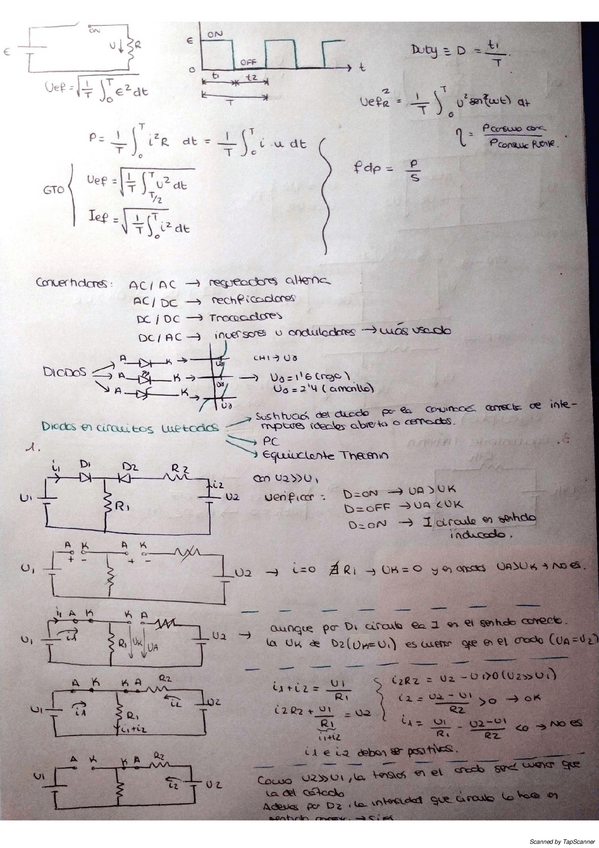 ON
ε U R
Uef = √(1/T ∫₀ᵀ ε² dt)
ε ON
0 OFF t
t1 t2
T
Duty ≡ D = t1/T.
UefR² = 1/T ∫₀ᵀ U² sen²(ωt) dt
P = 1/T ∫₀ᵀ i²R dt = 1/T ∫₀ᵀ i·u dt
fdp = P/S
GTO
Uef = √(1/T ∫_{T/2}^T U² dt)
Ief = √(1/T ∫₀ᵀ i² dt)
Convertidores: AC/AC → reguladores alterna
AC/DC → rectificadores
DC/DC → Troceadores
DC/AC → inversores u onduladores → más usado
DIODOS
A K → CH1 → U0
A K → → U0 = 1'6 (rojo)
A K → U0 = 2'4 (amarillo)
Diodos en circuitos métodos → Sustitución del diodo por la correcta de inte-
rruptores ideales abierta o cerrados.
→ PC
→ Equivalente Thevenin
1.
i1 D1 D2 R2 i2
U1 R1 U2
con U2>>U1
Verificar: D=ON → UA>UK
D=OFF → UA<UK
D=ON → I circula en sentido
indicado.
A K A K
+ - + -
U1 U2 → i=0 ∄ R1 → UK=0 y en ánodos UA>UK + NO es.
i1 A K K A
U1 i1 R1 UK UA U2 → aunque por D1 circula la I en el sentido correcto.
la UK de D2 (UK=U1) es menor que en el ánodo (UA=U2)
A K K A R2
U1 i1 R1 i1+i2 i2 U2
i1+i2 = U1/R1
i2R2 + U1/R1 = U2
i1+i2
i2R2 = U2 - U1>0 (U2>>U1)
i2 = U2-U1/R2 >0 → OK
i1 = U1/R1 - U2-U1/R2 <0 → NO es
i1 e i2 deben ser positivas.
A K K A R2
U1 i2 U2
Como U2>>U1, la tensión en el ánodo será menor que
la del cátodo
Además por D2, la intensidad que circula lo hace en
Scanned by TapScanner